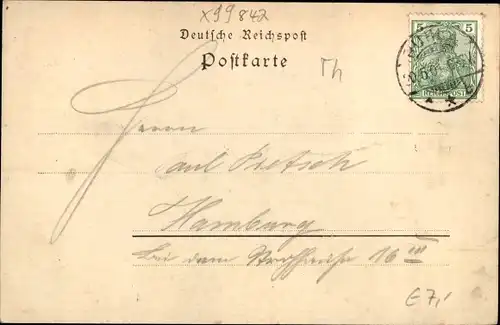 x99842
Deutsche Reichspost
Postkarte
Th
5 5
REICHSPOST
Herrn
Paul Pietsch
Hamburg
bei dem Strohhause 16 III
€ 7,-